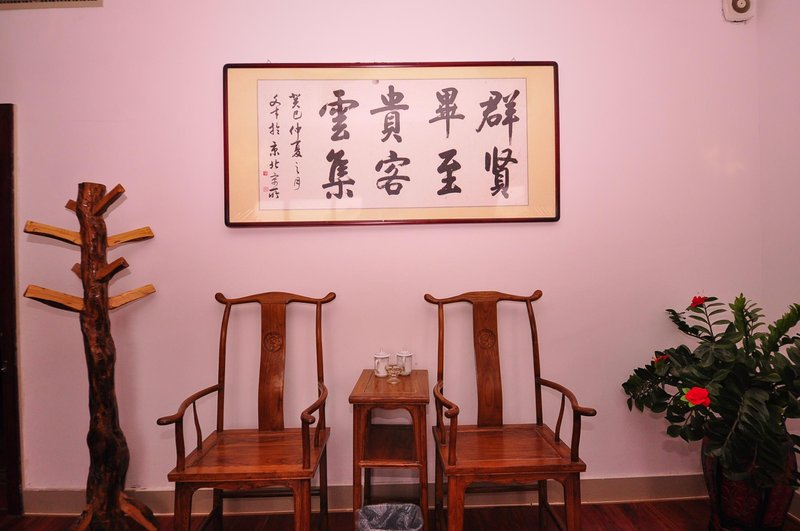 群贤
畢至
貴客
雲集
癸巳仲夏之月
文于於京北宗所